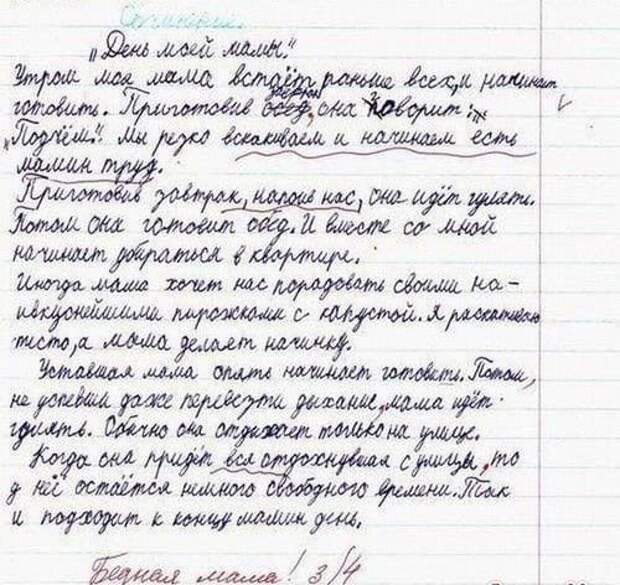 Сочинение.
„День моей мамы."
Утром моя мама встаёт раньше всех, и начинает
готовить. Приготовив завтрак, она говорит:
„Подъём." Мы резко вскакиваем и начинаем есть
мамин труд.
Приготовив завтрак, напоив нас, она идёт гулять.
Потом она готовит обед. И вместе со мной
начинает убираться в квартире.
Иногда мама хочет нас порадовать своими на-
ивкуснейшими пирожками с капустой. Я раскатываю
тесто, а мама делает начинку.
Уставшая мама опять начинает готовить. Потом,
не успевши даже перевезти дыхание, мама идёт
гулять. Обычно она отдыхает только на улице.
Когда она придёт вся отдохнувшая с улицы, то
у неё остаётся немного свободного времени. Так
и подходит к концу мамин день.
Бедная мама! 3/4